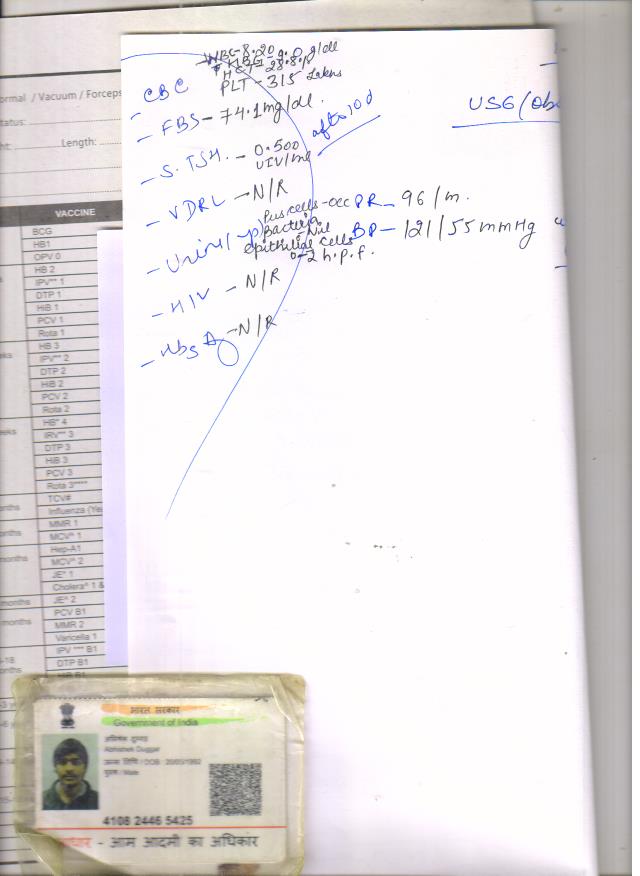 WBC-8.20
HB-9.0 g/dl
HCT-28.8%
CBC PLT - 315 Lakhs
- FBS - 74.1 mg/dl.
after 10 d
USG/(Obs
- S.TSH. - 0.500
UIV/ml
- VDRL - N/R
PR - 96/m.
- Urine(    ) Pus cells - occ
Bacteria - Nil
epithilial cells
0-2 h.p.f.
BP - 121/55 mmHg
- HIV - N/R
- HbsAg - N/R
ormal / Vacuum / Forceps
tatus:
ht: Length:
VACCINE
BCG
HB1
OPV 0
HB 2
IPV** 1
DTP 1
HiB 1
PCV 1
Rota 1
eks HB 3
IPV** 2
DTP 2
HiB 2
PCV 2
Rota 2
eeks HB* 4
IRV** 3
DTP 3
HiB 3
PCV 3
Rota 3****
onths TCV#
Influenza (Ye
onths MMR 1
MCV^ 1
months Hep-A1
MCV^ 2
JE^ 1
Cholera^ 1 &
months JE^ 2
months PCV B1
MMR 2
Varicella 1
-18 IPV *** B1
onths DTP B1
भारत सरकार
Government of India
अभिषेक दुग्गड़
Abhishek Duggar
जन्म तिथि / DOB : 20/05/1992
पुरुष / Male
4108 2446 5425
आधार - आम आदमी का अधिकार